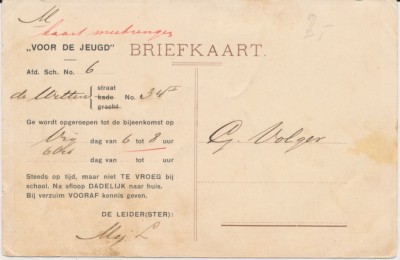 M
kaart meebrengen
3,-
„VOOR DE JEUGD”
BRIEFKAART.
Afd. Sch. No. 6
de Witten straat kade gracht. No. 34 I
Ge wordt opgeroepen tot de bijeenkomst op
Vrij dag van 6 tot 8 uur
dag van tot uur
G. Volger
Steeds op tijd, maar niet TE VROEG bij
school. Na afloop DADELIJK naar huis.
Bij verzuim VOORAF kennis geven.
DE LEIDER(STER):
Mej L